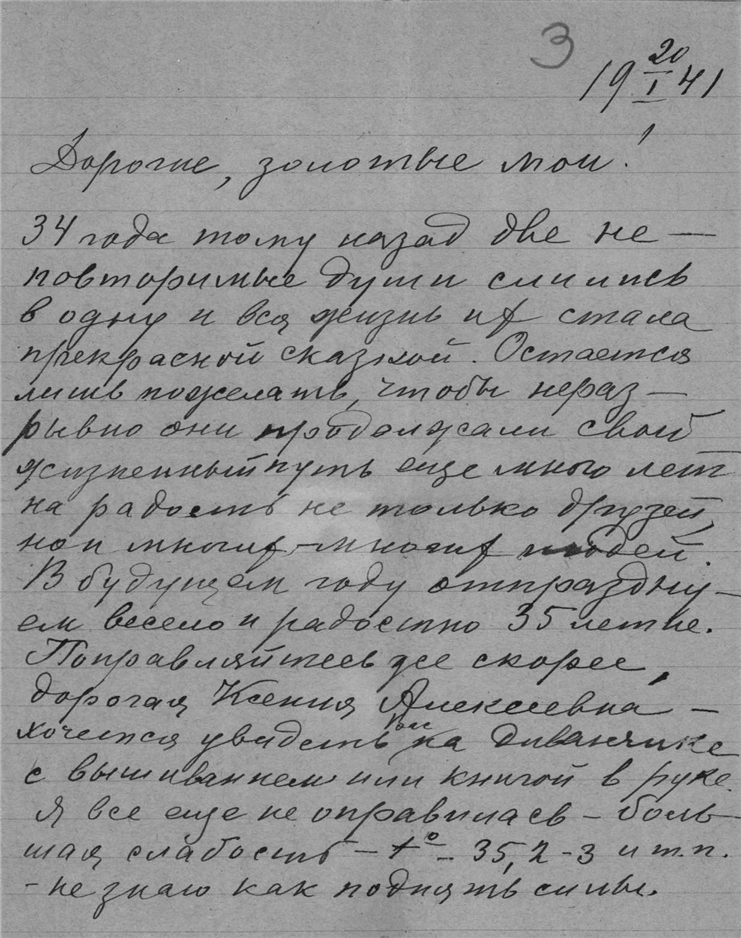 3
19 20/I 41
Дорогие, золотые мои!
34 года тому назад две не—
повторимые души слились
в одну и вся жизнь их стала
прекрасной сказкой. Остается
лишь пожелать, чтобы нераз—
рывно они продолжали свой
жизненный путь еще много лет
на радость не только друзей,
но и многих-многих людей.
В будущем году отпраздну—
ем весело и радостно 35 летие.
Поправляйтесь же скорее,
дорогая Ксения Алексеевна —
хочется увидеть Вас на диванчике
с вышиванием или книгой в руке.
Я все еще не оправилась – боль—
шая слабость – t° – 35,2-3 и т.п.
- не знаю как поднять силы.